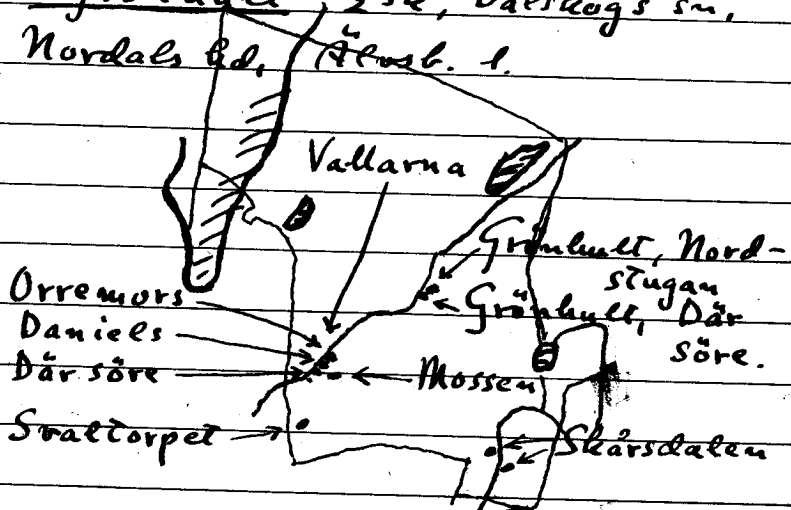 2 sk, Dalskogs sn,
Nordals hd, Älvsb. l.
Vallarna
Grönhult, Nord-
stugan
Grönhult, Där
söre.
Orremors
Daniels
Där söre
Mossen
Svaltorpet
Skårsdalen